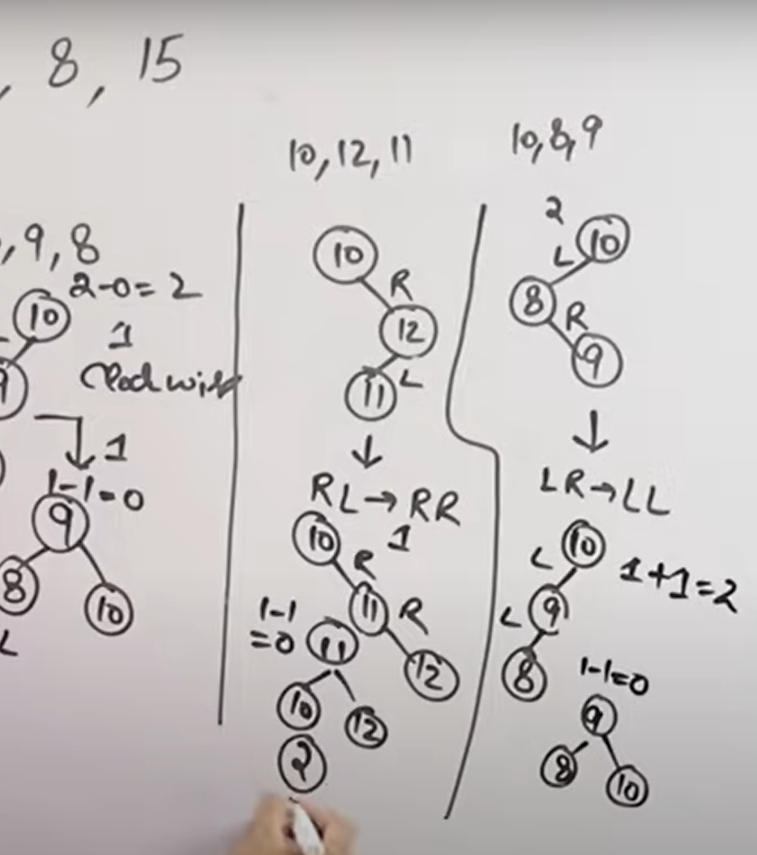 , 8, 15
, 9, 8
2-0=2
10
1
9
Clockwise
1
1-1=0
9
8
10
L
10, 12, 11
10
R
12
11 L
RL→RR
10
1
R
11 R
1-1
=0
11
12
10
12
2
10, 8, 9
2
10
L
8
R
9
LR→LL
L
10
1+1=2
L 9
8
1-1=0
9
8
10